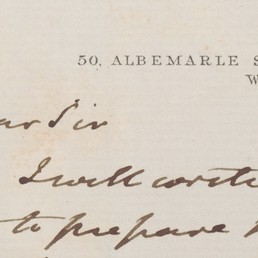 50, ALBEMARLE S
W
ar Sir
I will write
to prepare